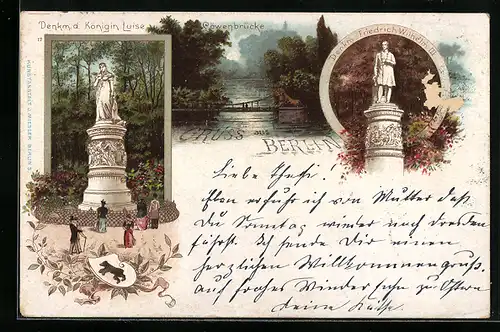 Denkm. d. Königin Luise
Löwenbrücke
Denkm. Friedrich Wilhelm III
17
GRUSS AUS
BERLIN
Liebe
Eben erfuhr ich von Mutter daß
Du Sonntag wieder nach Dresden
fährst. Ich sende Dir einen
herzlichen Willkommengruß.
auf frohes Wiedersehn zu Ostern
Deine Käthe.